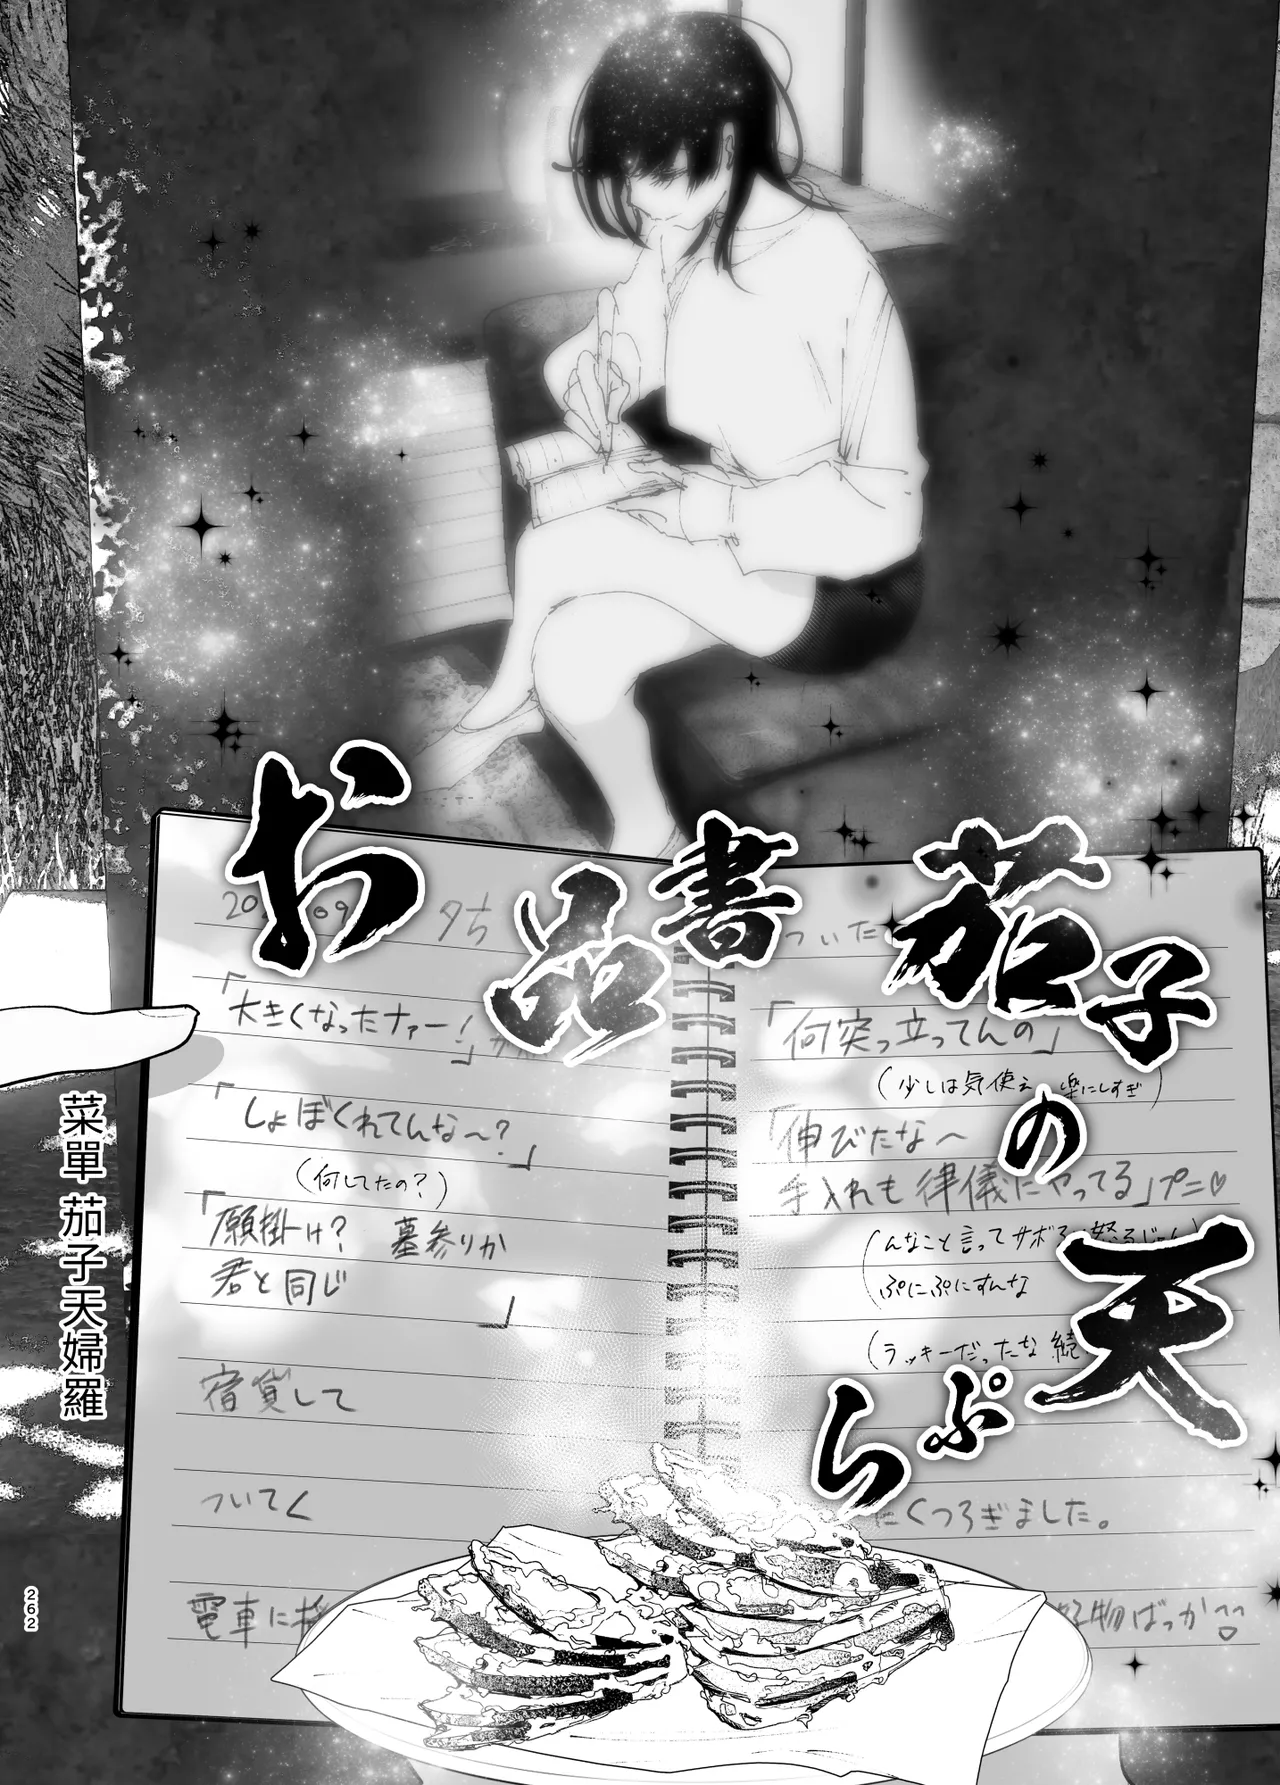 お品書
茄子の
天ぷら
大きくなったナァー!
「しょぼくれてんな〜?」
(何してたの?)
「願掛け? 墓参りか
君と同じ
」
宿貸して
ついてく
電車に
ついた
「何突っ立ってんの」
(少しは気使え 楽にしすぎ)
「伸びたな〜
手入れも律儀にやってる」プニ♡
(んなこと言ってサボ
ぷにぷにすんな
(ラッキーだったな
にくつろぎました。
物ばっか
菜單 茄子天婦羅
262